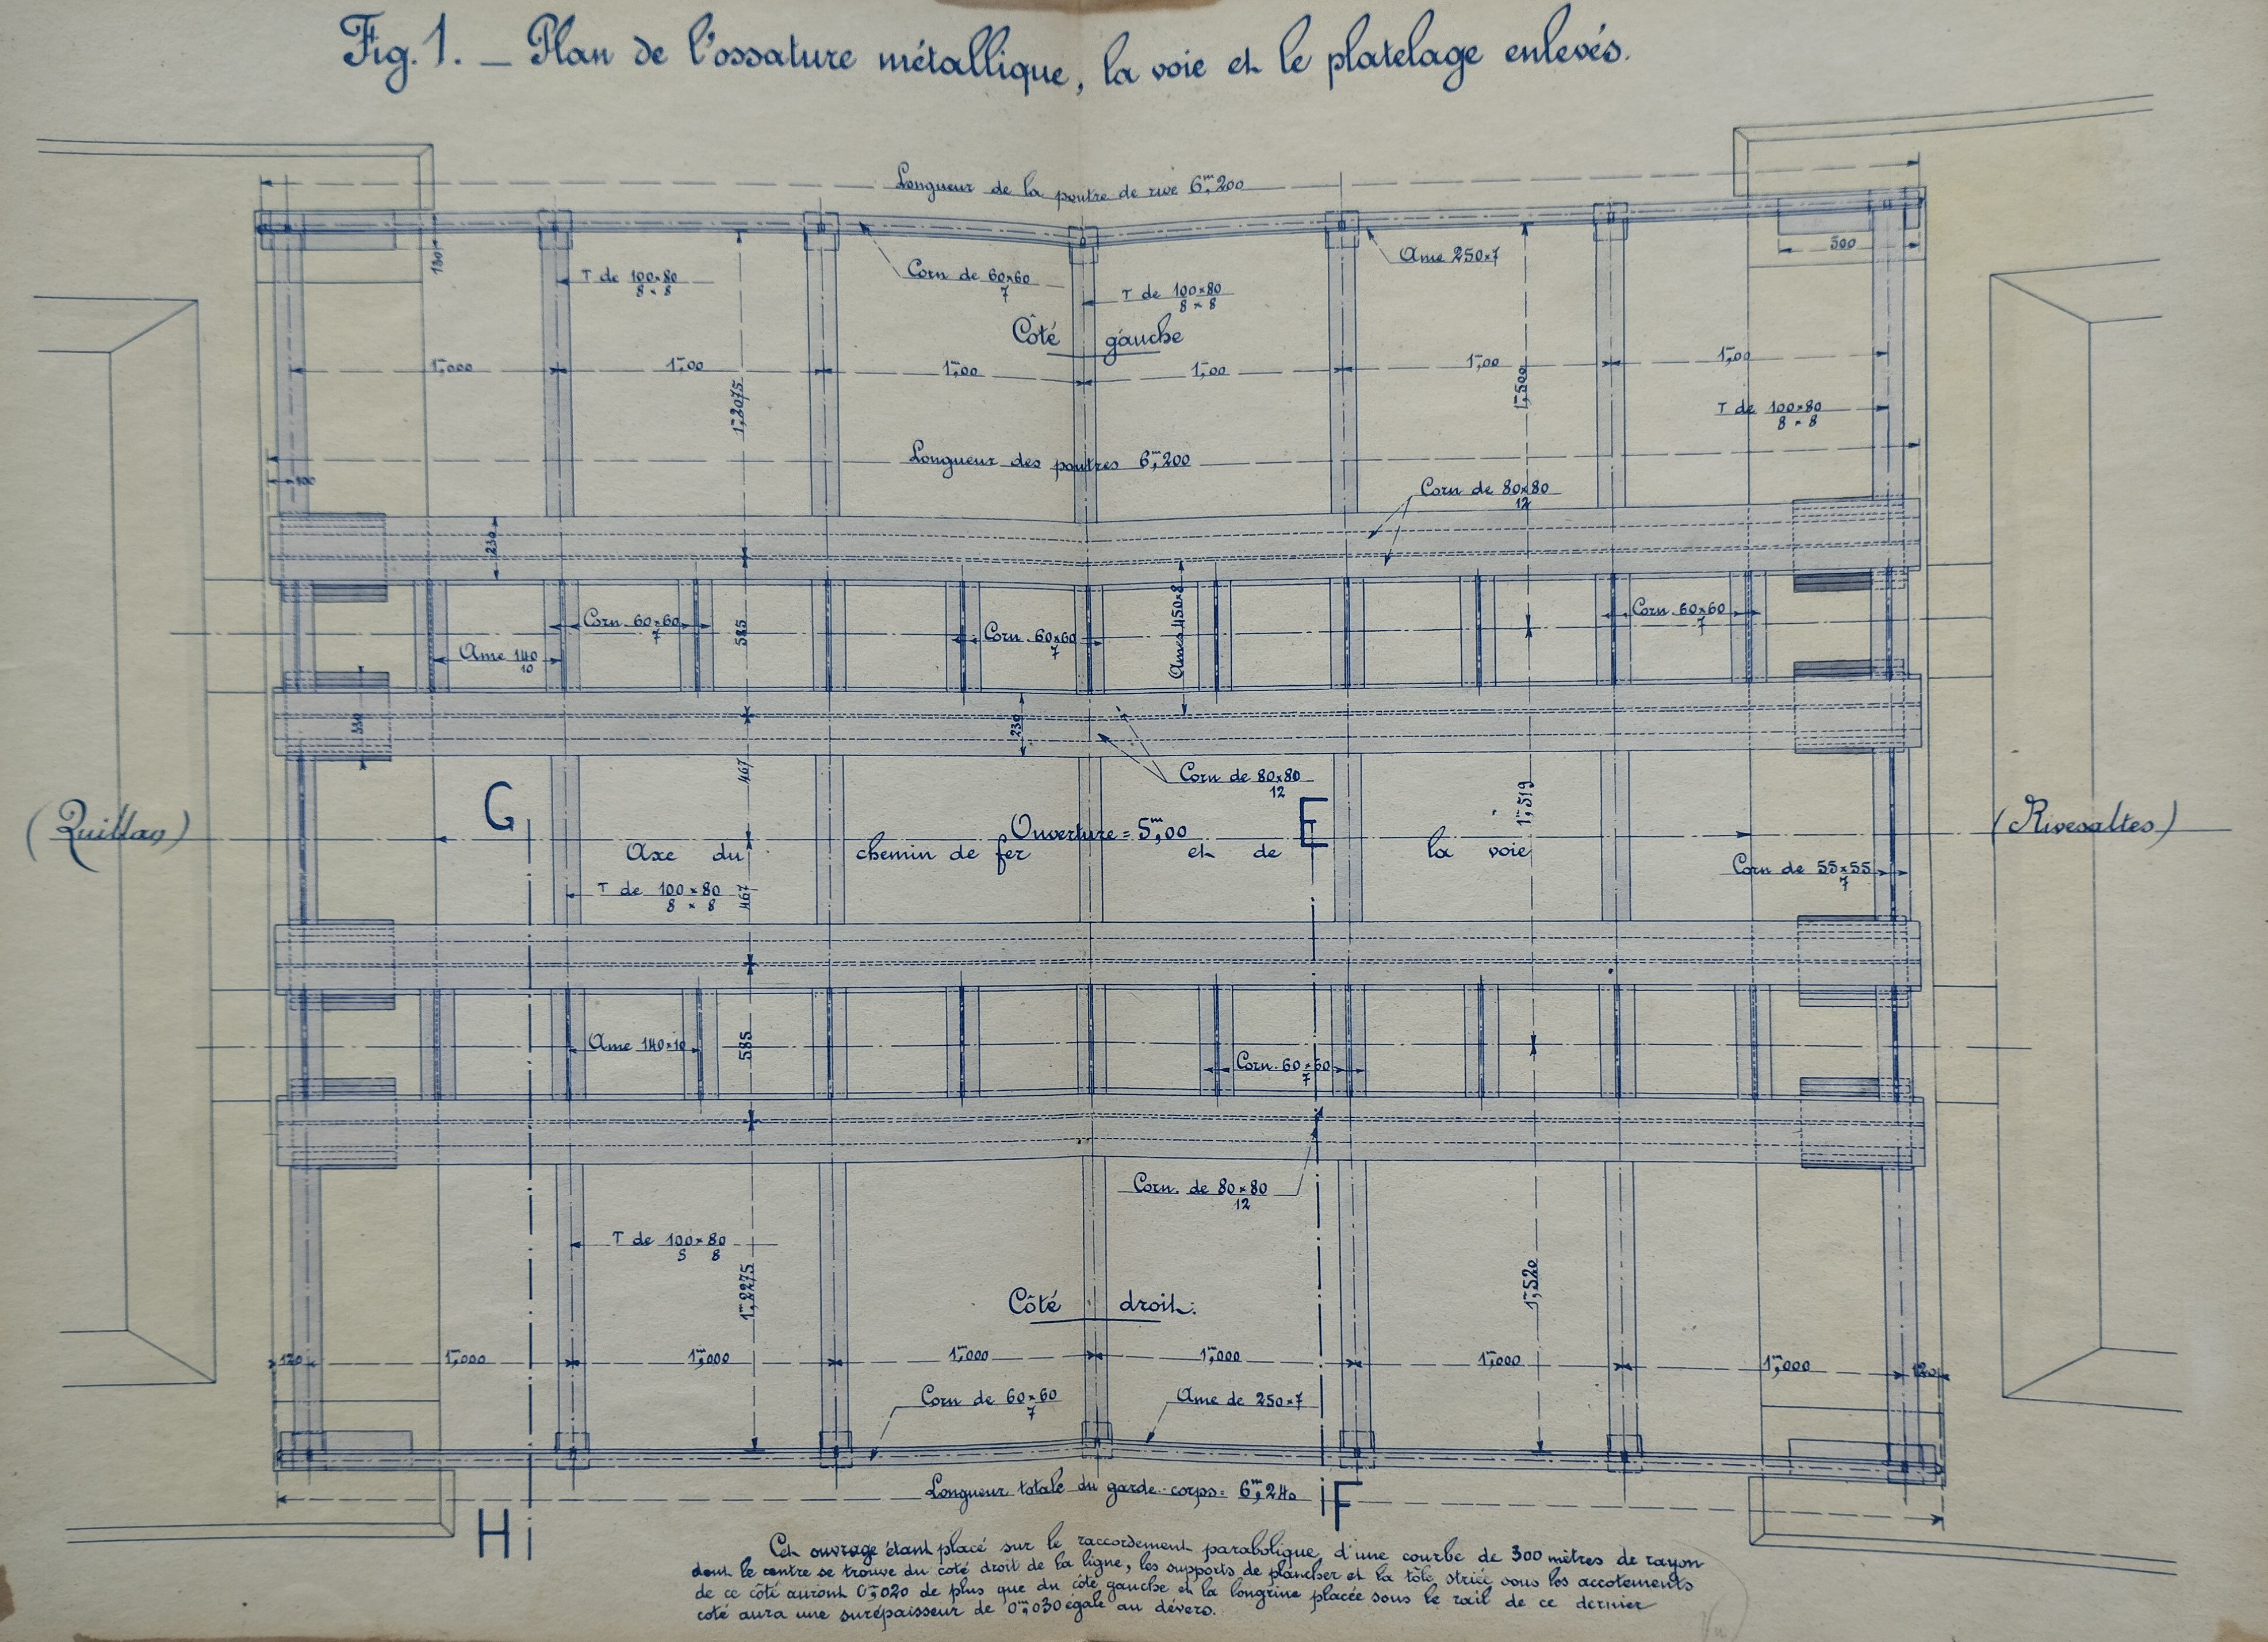 Fig. 1. — Plan de l'ossature métallique, la voie et le platelage enlevés.
Longueur de la poutre de rive 6m,200
180
T de 100×80
8 × 8
Corn de 60×60
7
T de 100×80
8 × 8
Ame 250×7
500
Côté gauche
1m,000
1m,00
1m,00
1m,00
1m,00
1m,00
1m,2075
1m,500
T de 100×80
8 × 8
Longueur des poutres 6m,200
100
Corn de 80×80
12
230
Corn 60×60
7
585
Corn 60×60
7
Ames 450×8
Corn 60×60
7
Ame 140
10
330
230
467
Corn de 80×80
12
1m,519
G
E
(Quillan)
Ouverture = 5m,00
(Rivesaltes)
Axe du chemin de fer et de la voie
T de 100×80
8 × 8
467
Corn de 55×55
7
Ame 140×10
585
Corn. 60×60
7
Corn. de 80×80
12
T de 100×80
8 8
1m,2275
1m,520
Côté droit.
120
1m,000
1m,000
1m,000
1m,000
1m,000
1m,000
120
Corn de 60×60
7
Ame de 250×7
Longueur totale du garde-corps = 6m,240
H
F
Cet ouvrage étant placé sur le raccordement parabolique d'une courbe de 300 mètres de rayon
dont le centre se trouve du coté droit de la ligne, les supports de plancher et la tôle striée sous les accotements
de ce côté auront 0m,020 de plus que du côté gauche et la longrine placée sous le rail de ce dernier
coté aura une surépaisseur de 0m,030 égale au dévers.